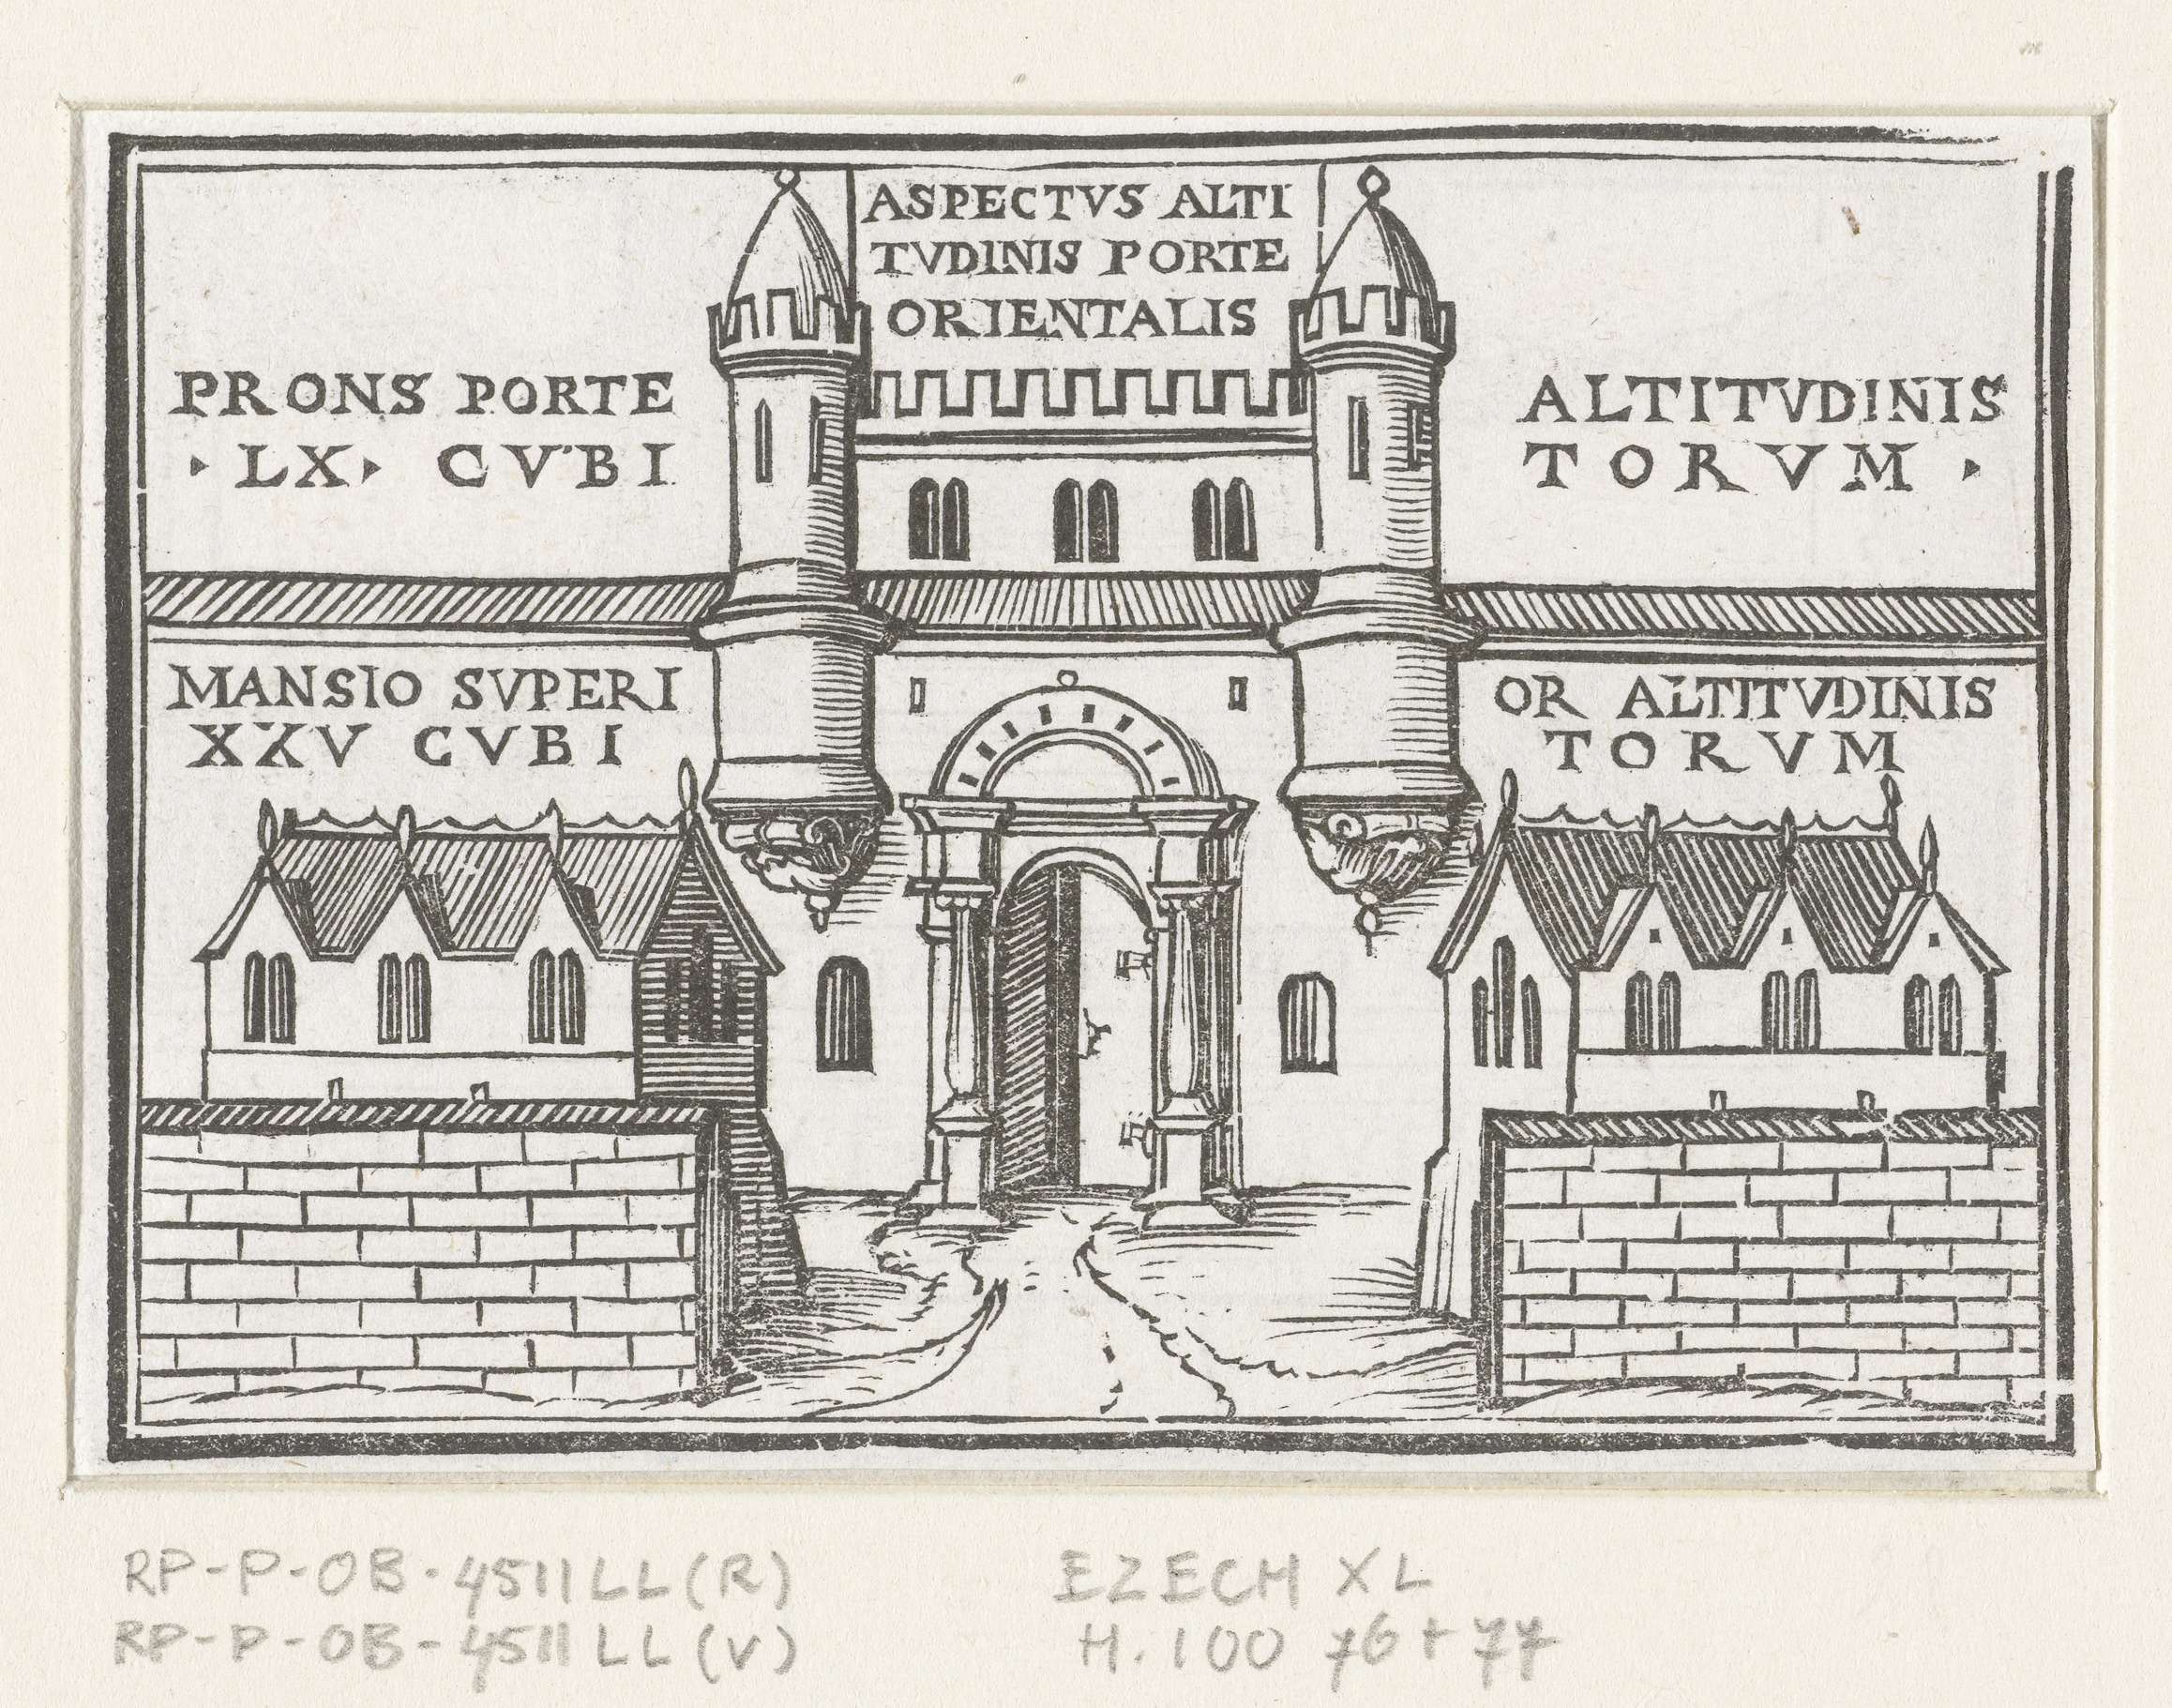 ASPECTVS ALTI
TVDINIS PORTE
ORIENTALIS
PRONS PORTE ALTITVDINIS
‣ LX ‣ CVBI TORVM ‣
MANSIO SVPERI OR ALTITVDINIS
XXV CVBI TORVM
RP-P-OB-4511LL(R) EZECH XL
RP-P-OB-4511LL(V) H.100 76+77